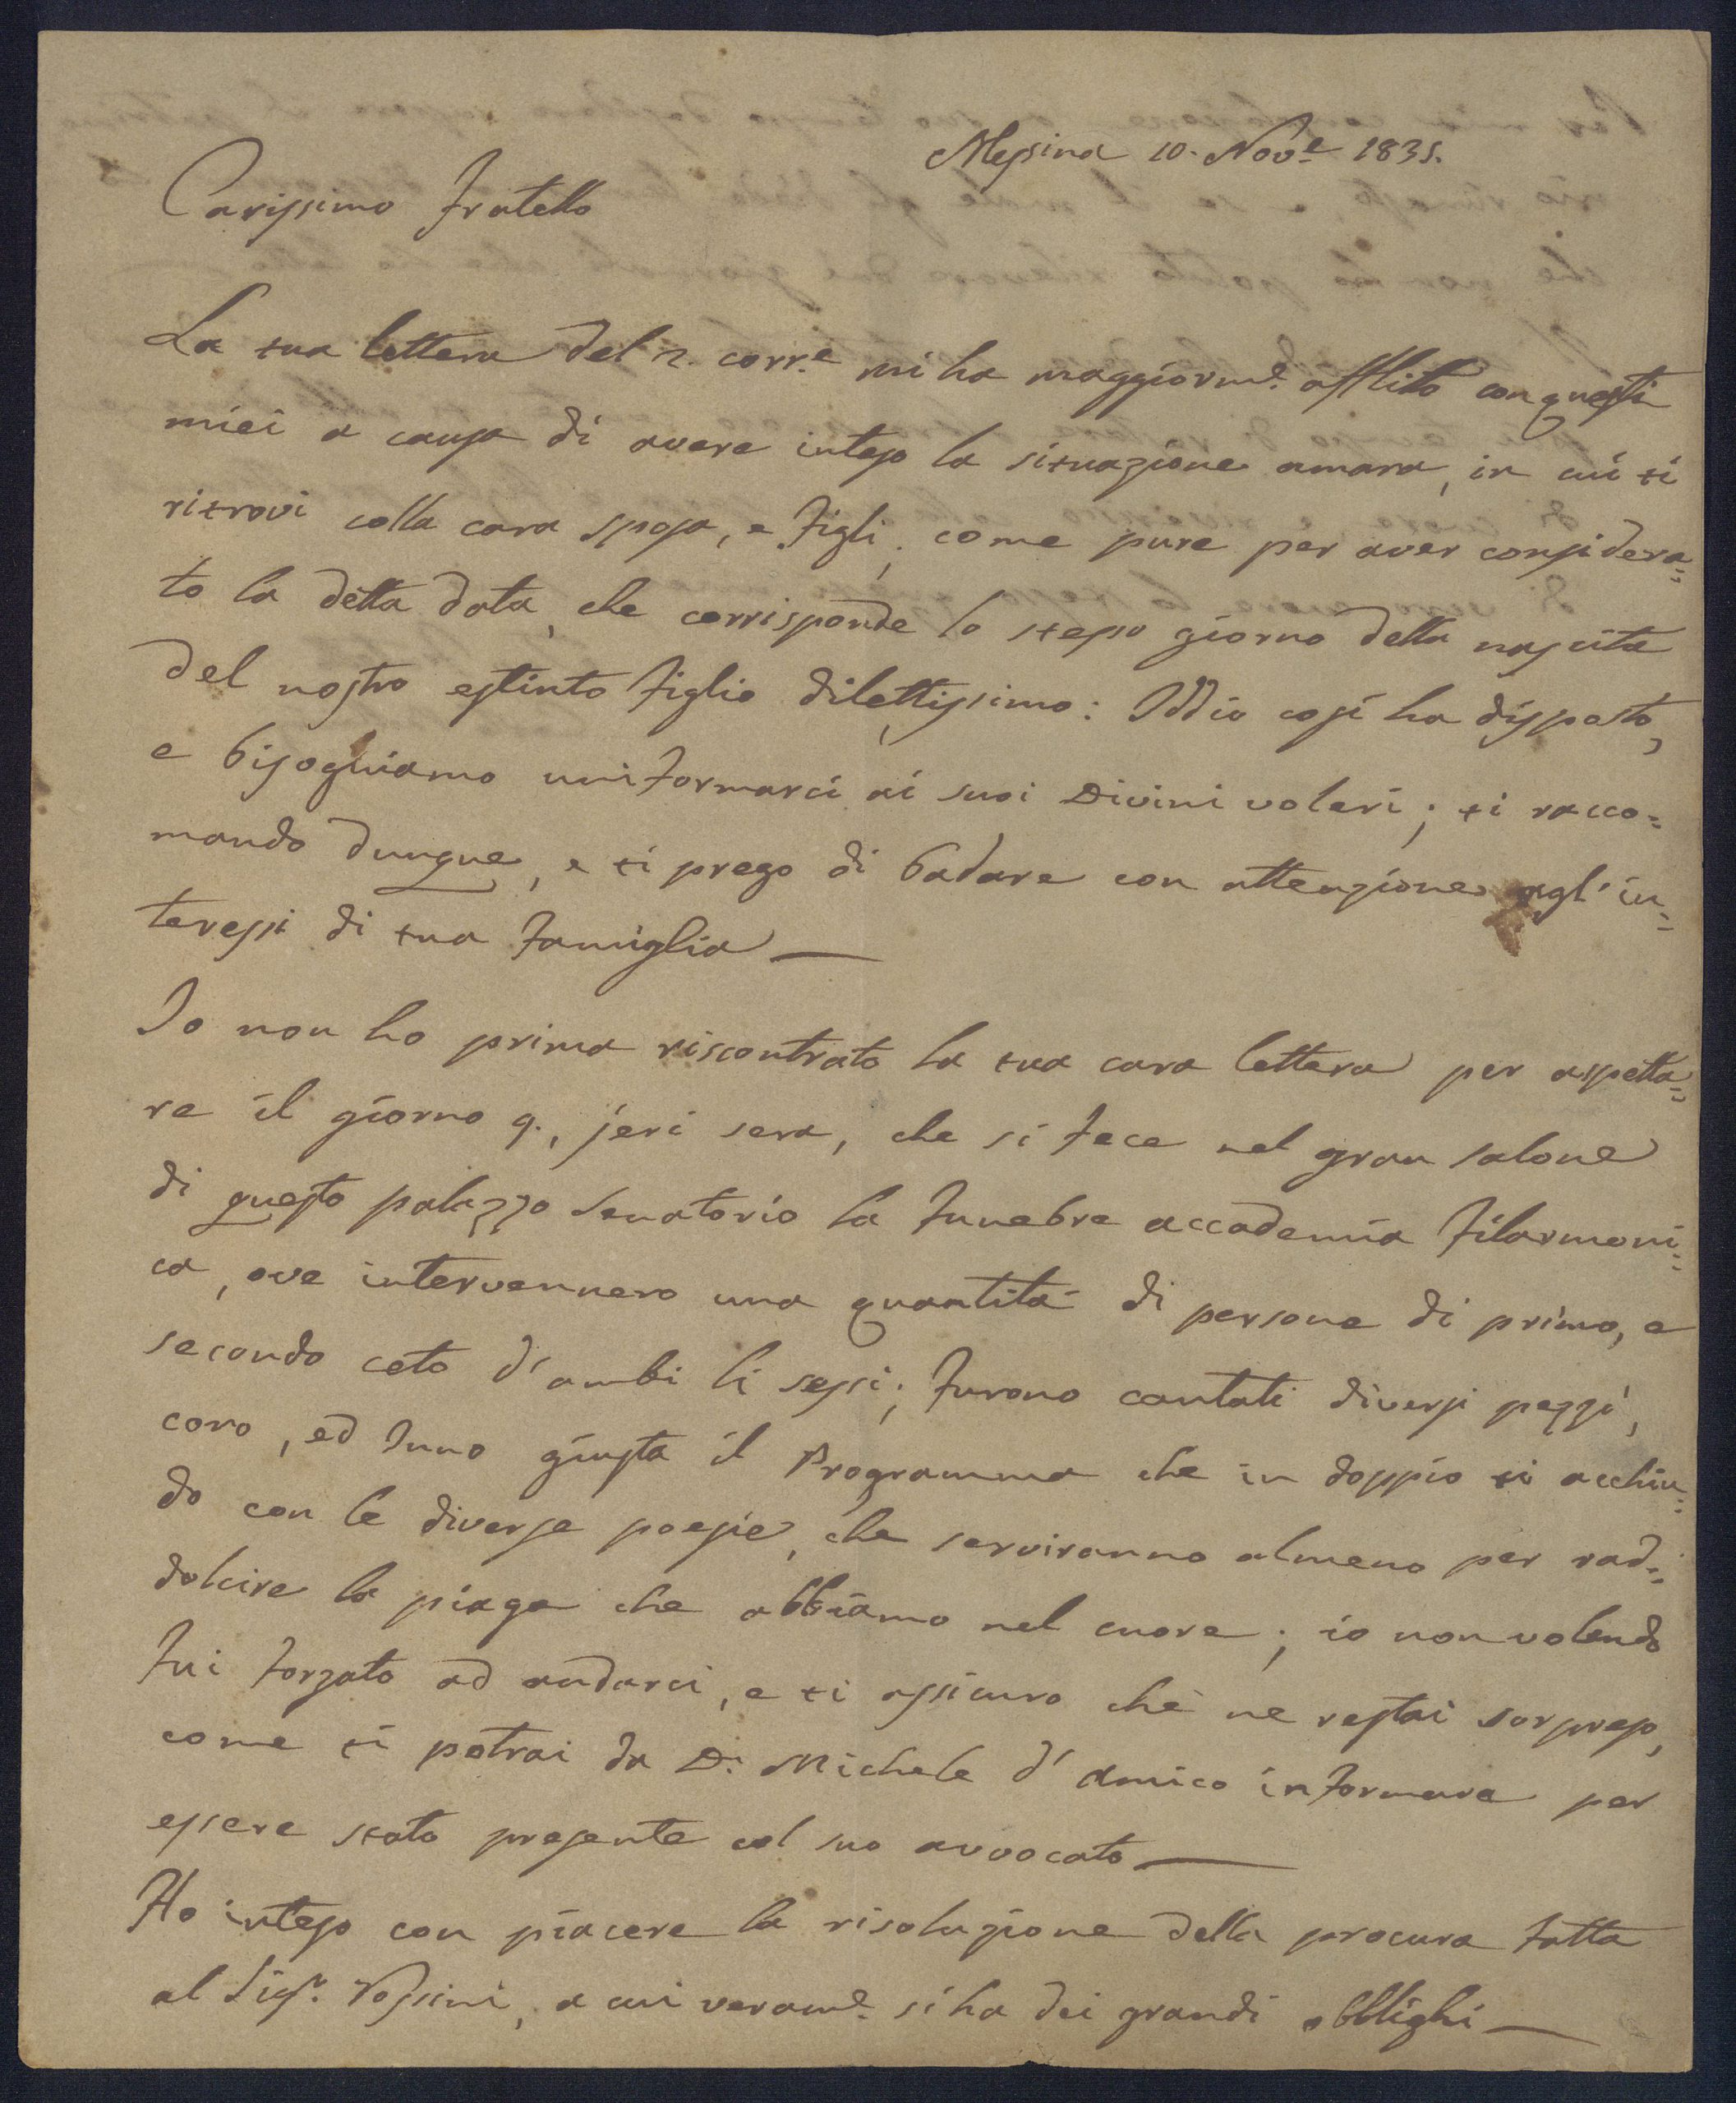 Messina 10. Nov.e 1835.
Carissimo Fratello
La tua lettera del 2. corr.e mi ha maggiorm.e afflitto con questi
miei a causa di avere inteso la situazione amara, in cui ti
ritrovi colla cara sposa, e figli, come pure per aver considera=
to la detta data, che corrisponde lo stesso giorno della nascita
del nostro estinto figlio dilettissimo: Iddio così ha disposto,
e bisogniamo uniformarci ai suoi Divini voleri; ti racco=
mando dunque, e ti prego di badare con attenzione agl'in=
teressi di tua famiglia —
Io non ho prima riscontrato la tua cara lettera per aspetta=
re il giorno 9., jeri sera, che si fece nel gran salone
di questo palazzo Senatorio la funebre accademia filarmoni=
ca, ove intervennero una quantità di persone di primo, e
secondo ceto d'ambi li sessi; furono cantati diversi pezzi,
coro, ed Inno giusta il Programma che in doppio ti acchiu=
do con le diverse poesie, che serviranno almeno per rad=
dolcire la piaga che abbiamo nel cuore; io non volendo
fui forzato ad andarci, e ti assicuro che ne restai sorpreso,
come ti potrai da D. Michele d'Amico informare per
essere stato presente col suo avvocato —
Ho inteso con piacere la risoluzione della procura fatta
al Sig.r Rossini, a cui veram.e si ha dei grandi obblighi —